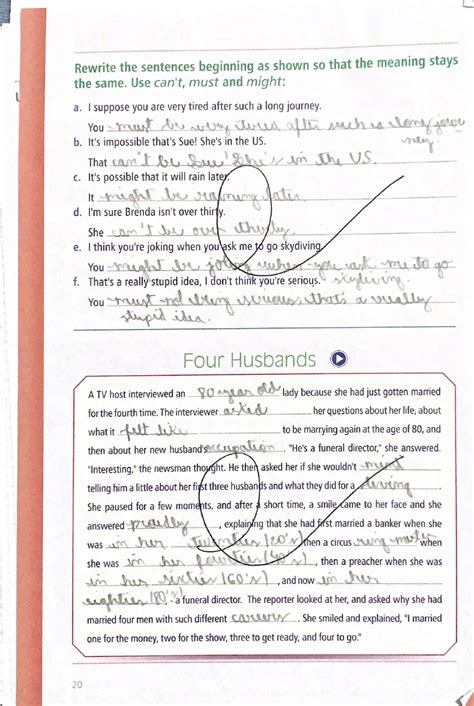 Rewrite the sentences beginning as shown so that the meaning stays
the same. Use can't, must and might:
a. I suppose you are very tired after such a long journey.
You must be very tired after such a long jour
b. It's impossible that's Sue! She's in the US. ney.
That can't be Sue! She's in the US.
c. It's possible that it will rain later.
It might be raining later.
d. I'm sure Brenda isn't over thirty.
She can't be over thirty.
e. I think you're joking when you ask me to go skydiving.
You might be joking when you ask me to go
f. That's a really stupid idea, I don't think you're serious. skydiving.
You must not being serious, that's a really
stupid idea.
Four Husbands
A TV host interviewed an 80-year old lady because she had just gotten married
for the fourth time. The interviewer asked her questions about her life, about
what it felt like to be marrying again at the age of 80, and
then about her new husband's occupation. "He's a funeral director," she answered.
"Interesting," the newsman thought. He then asked her if she wouldn't mind
telling him a little about her first three husbands and what they did for a living
She paused for a few moments, and after a short time, a smile came to her face and she
answered proudly, explaining that she had first married a banker when she
was in her twenties (20's) then a circus ring master when
she was in her fourties (40's), then a preacher when she was
in her sixties (60's), and now in her
eighties (80's), - a funeral director. The reporter looked at her, and asked why she had
married four men with such different careers. She smiled and explained, "I married
one for the money, two for the show, three to get ready, and four to go."
20